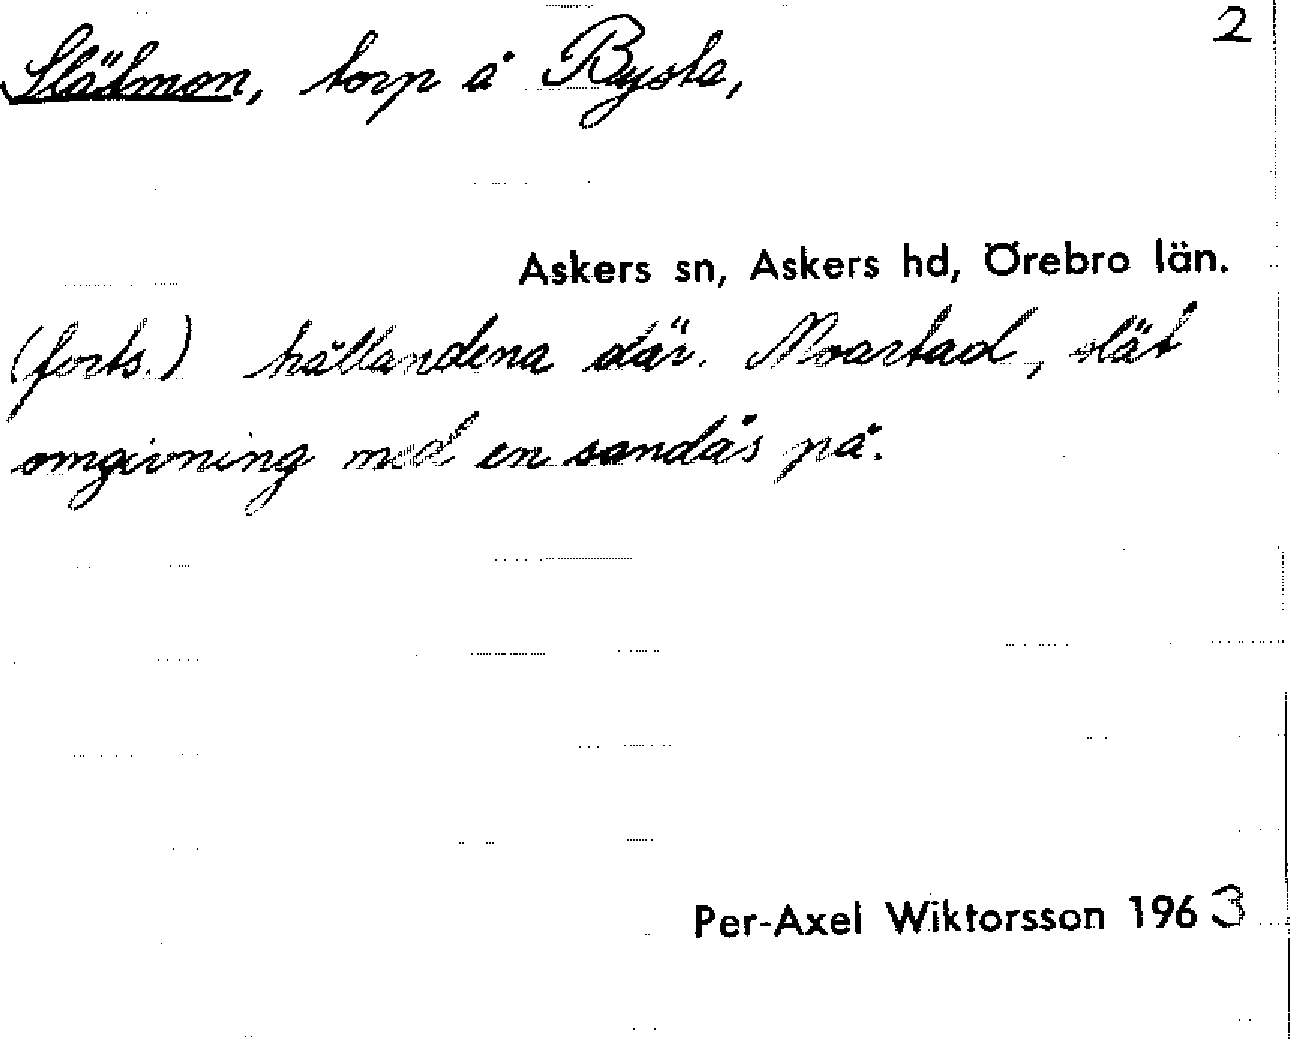 2
Slätmon, torp å Bysta,
Askers sn, Askers hd, Örebro län.
(forts.) hållandena där. Moartad, slät
omgivning med en sandås på.
Per-Axel Wiktorsson 1963